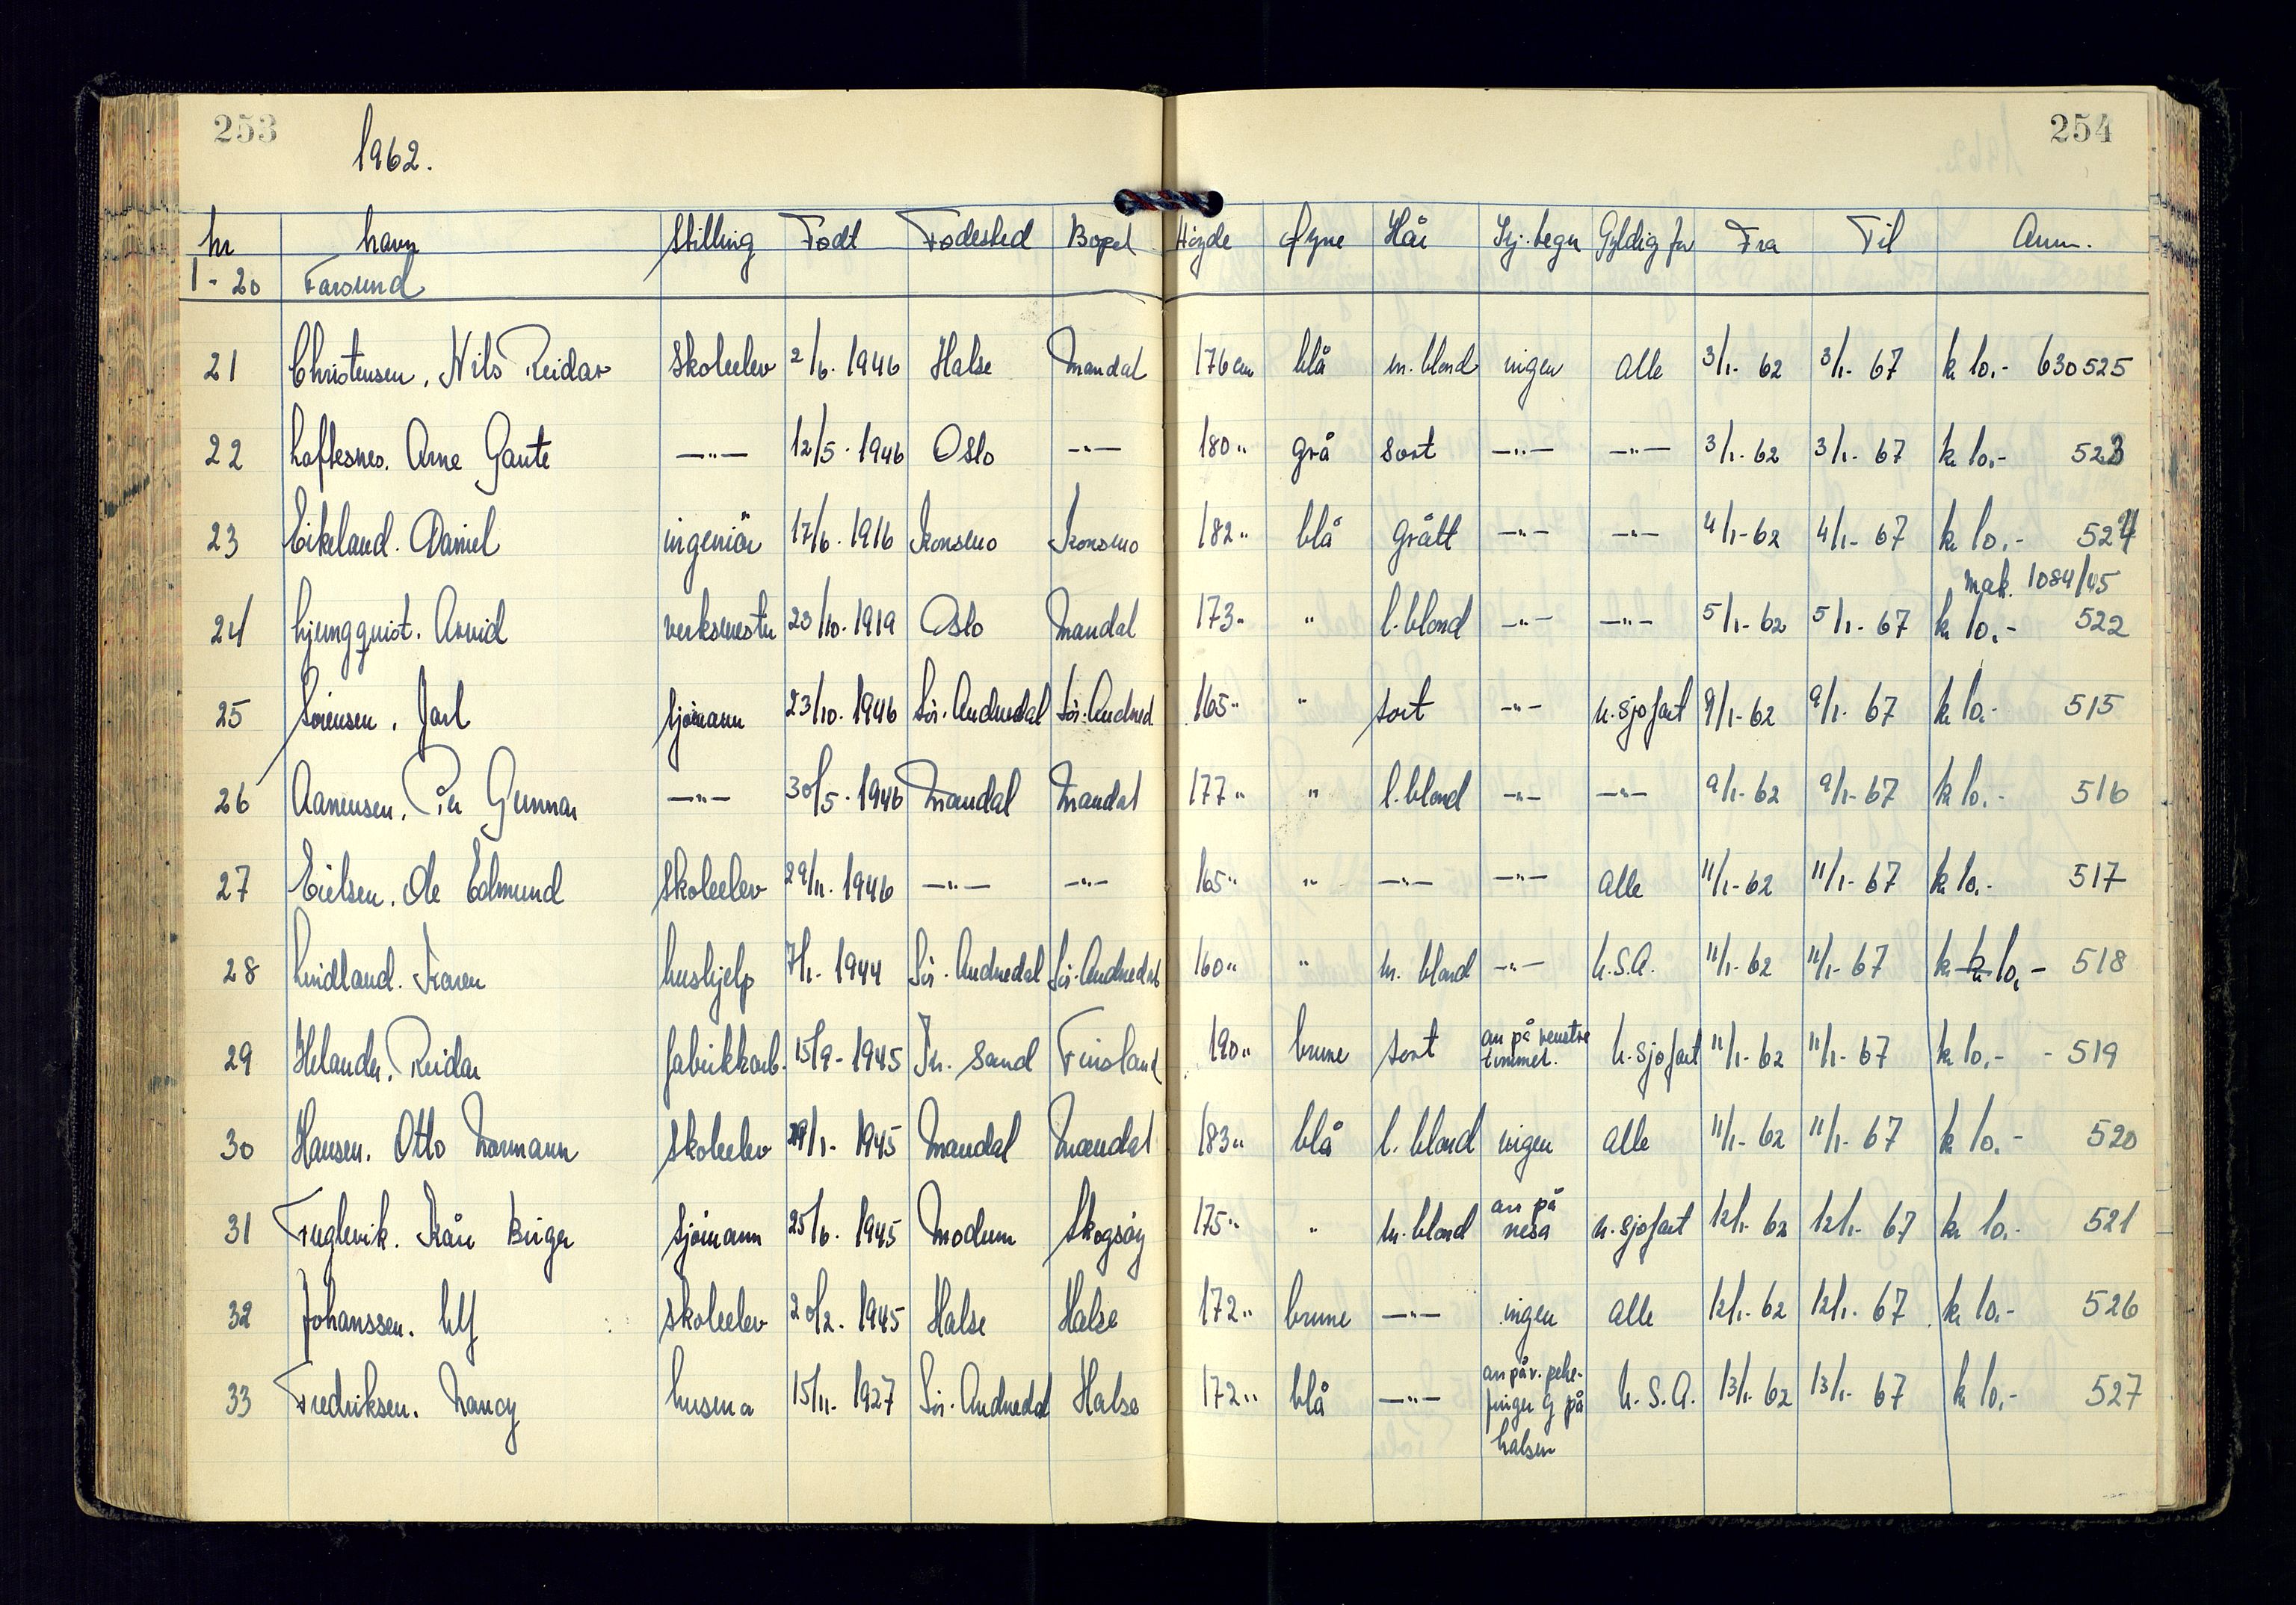 253
254
1962.
Nr Navn Stilling Født Fødested Bopel Høyde Øyne Hår Sj. tegn Gyldig for Fra Til Anm.
1 - 20 Farsund
21 Christensen, Nils Reidar skoleelev 2/6. 1946 Halse Mandal 176 cm blå m. blond ingen alle 3/1- 62 3/1- 67 kr 10.- 630525
22 Loftesnes. Arne Gaute —"— 12/5. 1946 Oslo —"— 180 " grå sort —"— —"— 3/1- 62 3/1- 67 kr 10.- 523
23 Eikeland. Daniel ingeniør 17/6. 1916 Konsmo Konsmo 182 " blå grått —"— —"— 4/1- 62 4/1- 67 kr 10.- 524
mak. 1084/45
24 Ljungquist. Arvid verksmester 23/10. 1919 Oslo Mandal 173 " " l. blond —"— —"— 5/1- 62 5/1- 67 kr 10.- 522
25 Sørensen, Jarl sjømann 23/10. 1946 Sør. Audnedal Sør. Audned 165 " " sort —"— u. sjøfart 9/1- 62 9/1- 67 kr 10.- 515
26 Aanensen, Per Gunnar —"— 30/5. 1946 Mandal Mandal 177 " " l. blond —"— —"— 9/1- 62 9/1- 67 kr 10.- 516
27 Eielsen. Ole Edmund skoleelev 29/11. 1946 —"— —"— 165 " " —"— —"— alle 11/1- 62 11/1- 67 kr 10.- 517
28 Lindland. Karen hushjelp 7/1. 1944 Sør. Audnedal Sør. Audnedal 160 " " m. blond —"— U.S.A. 11/1- 62 11/1- 67 kr kr 10,- 518
29 Helander. Reidar fabrikkarb. 15/9- 1945 Kr. sand Finsland 190 " brune sort arr på venstre u. sjøfart 11/1- 62 11/1- 67 kr 10.- - 519
tommel.
30 Hansen. Otto Normann skoleelev 29/1. 1945 Mandal Mandal 183 " blå l. blond ingen alle 11/1- 62 11/1- 67 kr 10.- 520
31 Fuglevik. Kåre Birger sjømann 25/6. 1945 Modum Skogsøy 175 " " m. blond arr på u. sjøfart 12/1- 62 12/1- 67 kr 10.- 521
nesa
32 Johanssen. Ulf skoleelev 20/2. 1945 Halse Halse 172 " brune —"— ingen alle 12/1- 62 12/1- 67 kr 10.- 526
33 Fredriksen. Nancy husmor 15/11. 1927 Sør. Audnedal Halse 172 " blå —"— arr på v. peke- U.S.A. 13/1- 62 13/1- 67 kr 10.- 527
finger og på
halsen